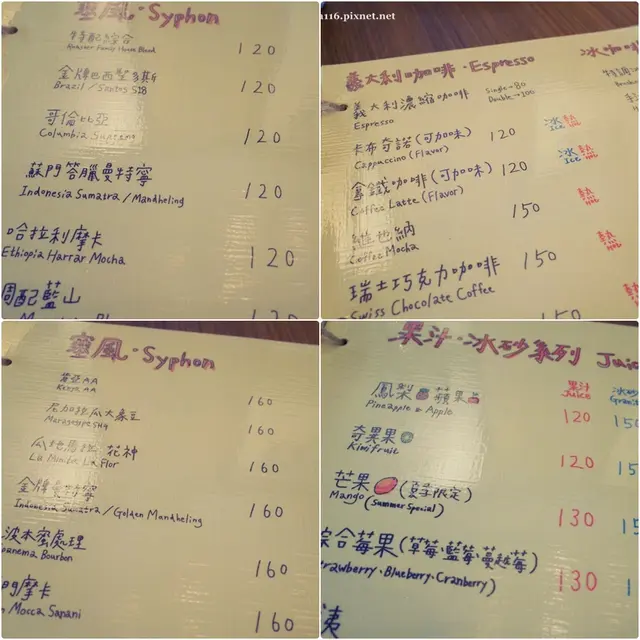 塞風·Syphon
特配綜合
House Blend
120
金牌巴西聖多斯
Brazil / Santos S18
120
哥倫比亞
Columbia Supremo
120
蘇門答臘曼特寧
Indonesia Sumatra / Mandheling
120
哈拉利摩卡
Ethiopia Harrar Mocha
120
調配藍山
116.pixnet.net
義大利咖啡·Espresso
冰咖啡
義大利濃縮咖啡
Espresso
Single→80
Double→100
卡布奇諾(可加味) 120 冰熱
Cappuccino (Flavor) Ice
拿鐵咖啡(可加味) 120 冰熱
Coffee Latte (Flavor) Ice
維也納 150 熱
Coffee Mocha
瑞士巧克力咖啡 150 熱
Swiss Chocolate Coffee
150
塞風·Syphon
肯亞AA
Kenya AA
160
尼加拉瓜大象豆
160
瓜地馬拉 花神
La Minita La Flor
160
金牌曼特寧
Indonesia Sumatra / Golden Mandheling
160
波本蜜處理
panema Bourbon
160
門摩卡
Mocca Sanani
160
果汁·冰砂系列 Juice
果汁 冰砂
Juice Granita
鳳梨 蘋果
Pineapple & Apple
120 150
奇異果
Kiwifruit
120 15
芒果 (夏季限定)
Mango (Summer Special)
130 15
綜合莓果(草莓·藍莓·蔓越莓)
trawberry·Blueberry·Cranberry)
130 1